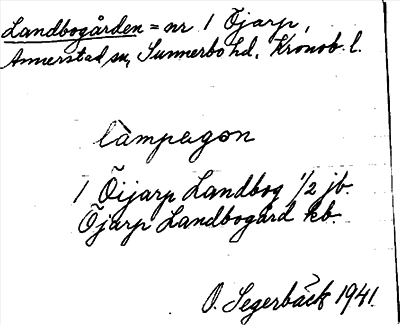 Landbogården = nr 1 Öjarp,
Annerstad sn, Sunnerbo hd, Kronob. l.
lampagon
1 Öijarp Landbog 1/2 jb.
Öjarp Landbogård kb.
O. Segerbäck 1941.